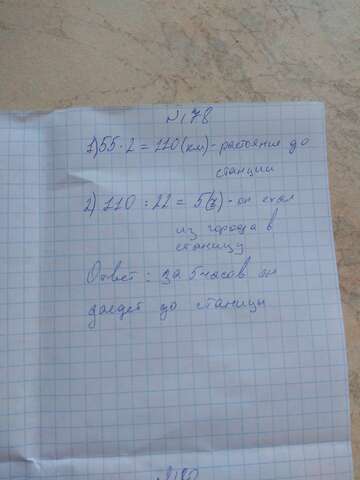 №178
1) 55 · 2 = 110 (км) - растояние до
станции
2) 110 : 22 = 5 (ч) - он ехал
из города в
станицу
Ответ: за 5 часов он
доедет до станицы